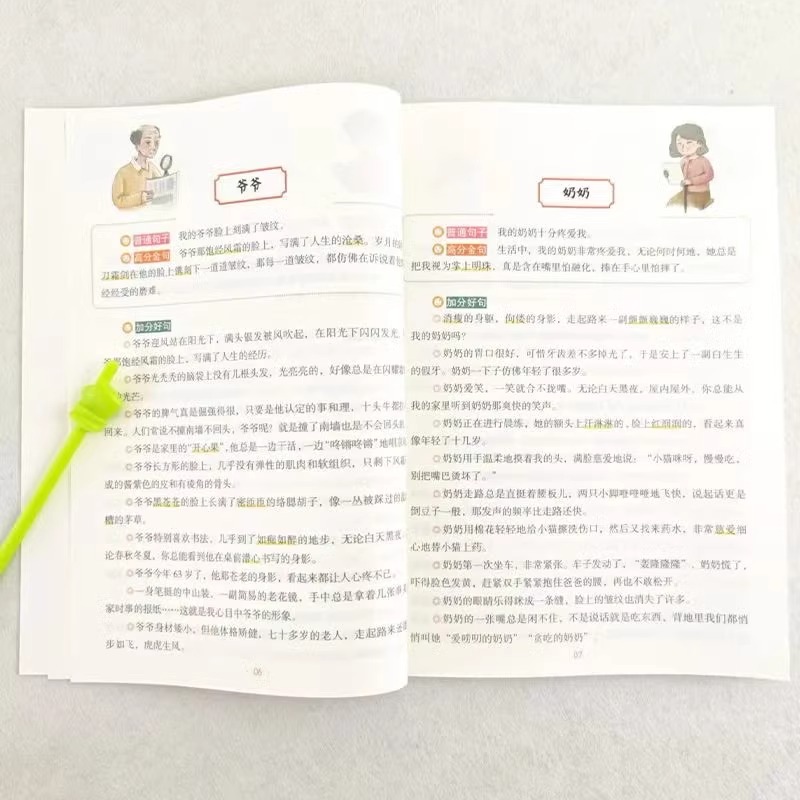 爷爷
普通句子 我的爷爷脸上刻满了皱纹。
高分金句 爷爷那饱经风霜的脸上，写满了人生的沧桑。岁月的
刀霜剑在他的脸上镌刻下一道道皱纹，那每一道皱纹，都仿佛在诉说着他
经经受的磨难。
加分好句
◎爷爷迎风站在阳光下，满头银发被风吹起，在阳光下闪闪发光，
那饱经风霜的脸上，写满了人生的经历。
◎爷爷光秃秃的脑袋上没有几根头发，光亮亮的，好像总是在闪耀
光芒。
◎爷爷的脾气真是倔强得很，只要是他认定的事和理，十头牛都拉
回来。人们常说不撞南墙不回头，爷爷呢？就是撞了南墙也是不会回头
◎爷爷是家里的“开心果”，他总是一边干活，一边“咚锵咚锵”地唱
◎爷爷长方形的脸上，几乎没有弹性的肌肉和软组织，只剩下风
成的酱紫色的皮和有棱角的骨头。
◎爷爷黑苍苍的脸上长满了密匝匝的络腮胡子，像一丛被踩过的
糟的茅草。
◎爷爷特别喜欢书法，几乎到了如痴如醉的地步，无论白天黑夜
论春秋冬夏，你总能看到他在桌前潜心书写的身影。
◎爷爷今年63岁了，他那苍老的身影，看起来都让人心疼不已。
◎一身笔挺的中山装，一副简易的老花镜，手中总是拿着几张
家时事的报纸……这就是我心目中爷爷的形象。
◎爷爷身材矮小，但他体格矫健，七十多岁的老人，走起路来还
步如飞，虎虎生风。
06
奶奶
普通句子 我的奶奶十分疼爱我。
高分金句 生活中，我的奶奶非常疼爱我，无论何时何地，她总是
把我视为掌上明珠，真是含在嘴里怕融化，捧在手心里怕摔了。
加分好句
◎消瘦的身躯，佝偻的身影，走起路来一副颤颤巍巍的样子，这不是
我的奶奶吗？
◎奶奶的胃口很好，可惜牙齿差不多掉光了，于是安上了一副白生生
的假牙。奶奶一下子仿佛年轻了很多岁。
◎奶奶爱笑，一笑就合不拢嘴。无论白天黑夜，屋内屋外，你总能从
我的家里听到奶奶那爽快的笑声。
◎奶奶正在进行晨练，她的额头上汗淋淋的，脸上红润润的，看起来真
像年轻了十几岁。
◎奶奶用手温柔地摸着我的头，满脸慈爱地说：“小猫咪呀，慢慢吃，
别把嘴巴烫坏了。”
◎奶奶走路总是直挺着腰板儿，两只小脚噔噔噔地飞快，说起话更是
倒豆子一般，那发声的频率比走路还快。
◎奶奶用棉花轻轻地给小猫擦洗伤口，然后又找来药水，非常慈爱细
心地替小猫上药。
◎奶奶第一次坐车，非常紧张。车子发动了，“轰隆隆隆”，奶奶慌了，
吓得脸色发黄，赶紧双手紧紧抱住爸爸的腰，再也不敢松开。
◎奶奶的眼睛乐得眯成一条缝，脸上的皱纹也消失了许多。
◎奶奶的一张嘴总是闲不住，不是说话就是吃东西，背地里我们都悄
悄叫她“爱唠叨的奶奶”“贪吃的奶奶”
07